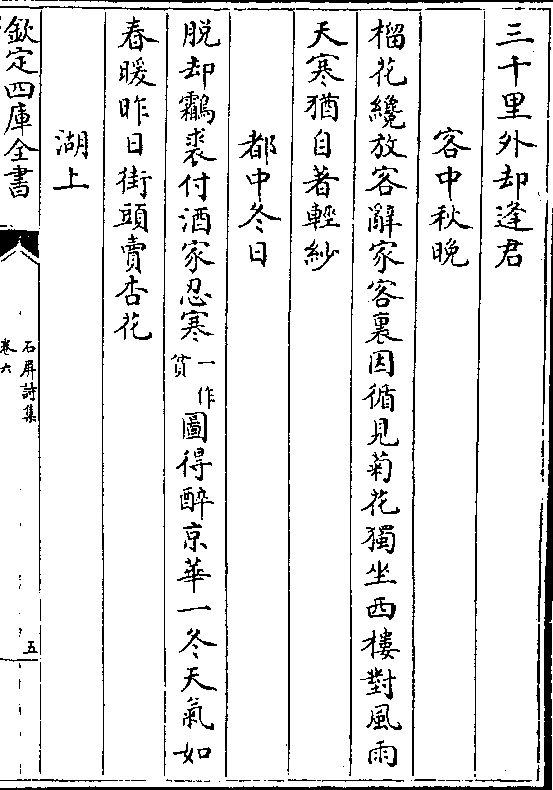 三千里外却逢君
客中秋晚
榴花纔放客辭家客裏因循見菊花獨坐西樓對風雨
天寒猶自著輕紗
都中冬日
脱却鸘裘付酒家忍寒一作貧圖得醉京華一冬天氣如
春暖昨日街頭賣杏花
湖上
欽定四庫全書
石屏詩集
卷六
五